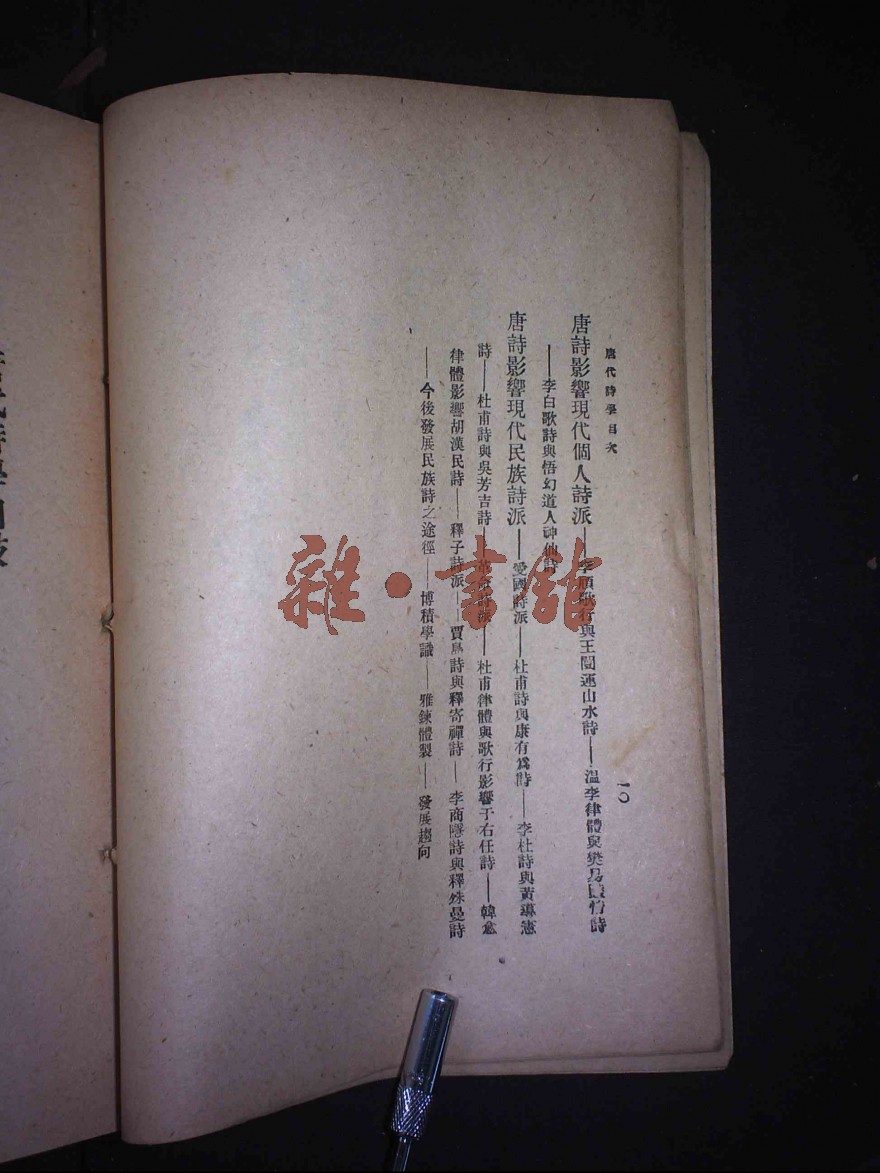 唐代詩學目次
一〇
唐詩影響現代個人詩派——李頎歌行與王闓運山水詩——溫李律體與樊易詩
——李白歌詩與悟幻道人神仙詩
唐詩影響現代民族詩派——愛國詩派——杜甫詩與康有爲詩——李杜詩與黃遵憲
詩——杜甫詩與吳芳吉詩——革命詩派——杜甫律體與歌行影響于右任詩——韓愈
律體影響胡漢民詩——釋子詩派——賈島詩與釋寄禪詩——李商隱詩與釋殊曼詩
——今後發展民族詩之途徑——博積學識——雅鍊體製——發展趨向
雜·書館